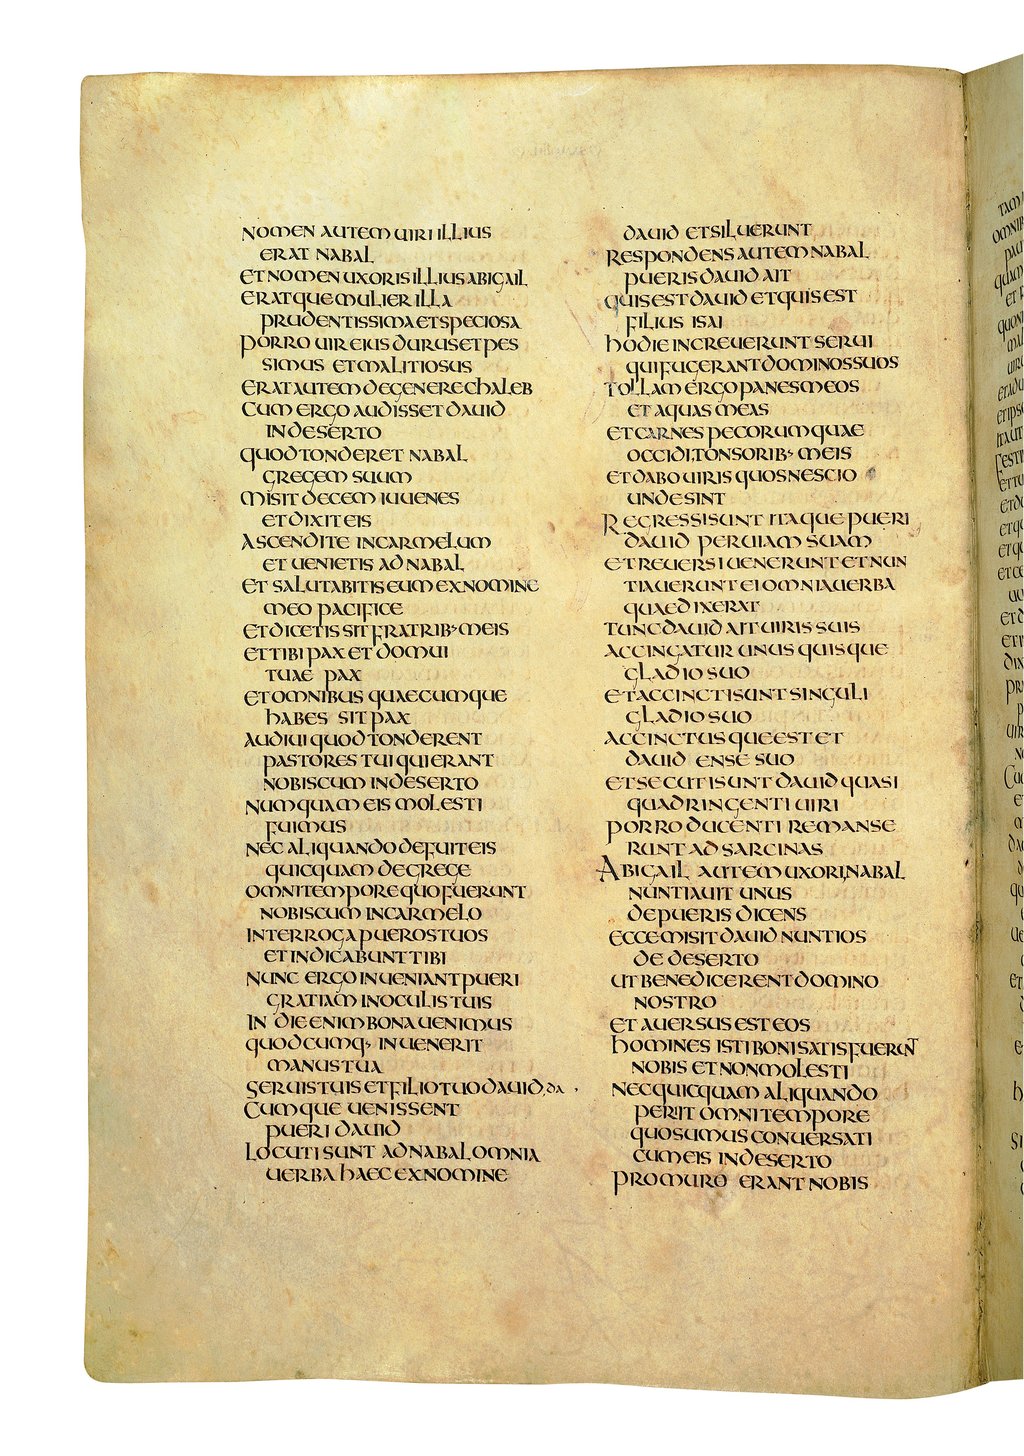 NOMEN AUTEM UIRI ILLIUS
ERAT NABAL
ET NOMEN UXORIS ILLIUS ABIGAIL
ERATQUE MULIER ILLA
PRUDENTISSIMA ET SPECIOSA
PORRO UIR EIUS DURUS ET PES
SIMUS ET MALITIOSUS
ERAT AUTEM DE GENERE CHALEB
CUM ERGO AUDISSET DAUID
IN DESERTO
QUOD TONDERET NABAL
GREGEM SUUM
MISIT DECEM IUUENES
ET DIXIT EIS
ASCENDITE IN CARMELUM
ET UENIETIS AD NABAL
ET SALUTABITIS EUM EX NOMINE
MEO PACIFICE
ET DICETIS SIT FRATRIB· MEIS
ET TIBI PAX ET DOMUI
TUAE PAX
ET OMNIBUS QUAECUMQUE
HABES SIT PAX
AUDIUI QUOD TONDERENT
PASTORES TUI QUI ERANT
NOBISCUM IN DESERTO
NUMQUAM EIS MOLESTI
FUIMUS
NEC ALIQUANDO DEFUIT EIS
QUICQUAM DE GREGE
OMNI TEMPORE QUO FUERUNT
NOBISCUM IN CARMELO
INTERROGA PUEROS TUOS
ET INDICABUNT TIBI
NUNC ERGO INUENIANT PUERI
GRATIAM IN OCULIS TUIS
IN DIE ENIM BONA UENIMUS
QUODCUMQ· INUENERIT
MANUS TUA
SERUIS TUIS ET FILIO TUO DAUID, da
CUMQUE UENISSENT
PUERI DAUID
LOCUTI SUNT AD NABAL OMNIA
UERBA HAEC EX NOMINE
DAUID ET SILUERUNT
RESPONDENS AUTEM NABAL
PUERIS DAUID AIT
QUIS EST DAUID ET QUIS EST
FILIUS ISAI
HODIE INCREUERUNT SERUI
QUI FUGERANT DOMINOS SUOS
TOLLAM ERGO PANES MEOS
ET AQUAS MEAS
ET CARNES PECORUM QUAE
OCCIDI TONSORIB· MEIS
ET DABO UIRIS QUOS NESCIO
UNDE SINT
REGRESSI SUNT ITAQUE PUERI
DAUID PER UIAM SUAM
ET REUERSI UENERUNT ET NUN
TIAUERUNT EI OMNIA UERBA
QUAE DIXERAT
TUNC DAUID AIT UIRIS SUIS
ACCINGATUR UNUSQUISQUE
GLADIO SUO
ET ACCINCTI SUNT SINGULI
GLADIO SUO
ACCINCTUSQUE EST ET
DAUID ENSE SUO
ET SECUTI SUNT DAUID QUASI
QUADRINGENTI UIRI
PORRO DUCENTI REMANSE
RUNT AD SARCINAS
ABIGAIL AUTEM UXORI NABAL
NUNTIAUIT UNUS
DE PUERIS DICENS
ECCE MISIT DAUID NUNTIOS
DE DESERTO
UT BENEDICERENT DOMINO
NOSTRO
ET AUERSUS EST EOS
HOMINES ISTI BONI SATIS FUERUNT
NOBIS ET NON MOLESTI
NEC QUICQUAM ALIQUANDO
PERIIT OMNI TEMPORE
QUO SUMUS CONUERSATI
CUM EIS IN DESERTO
PRO MURO ERANT NOBIS